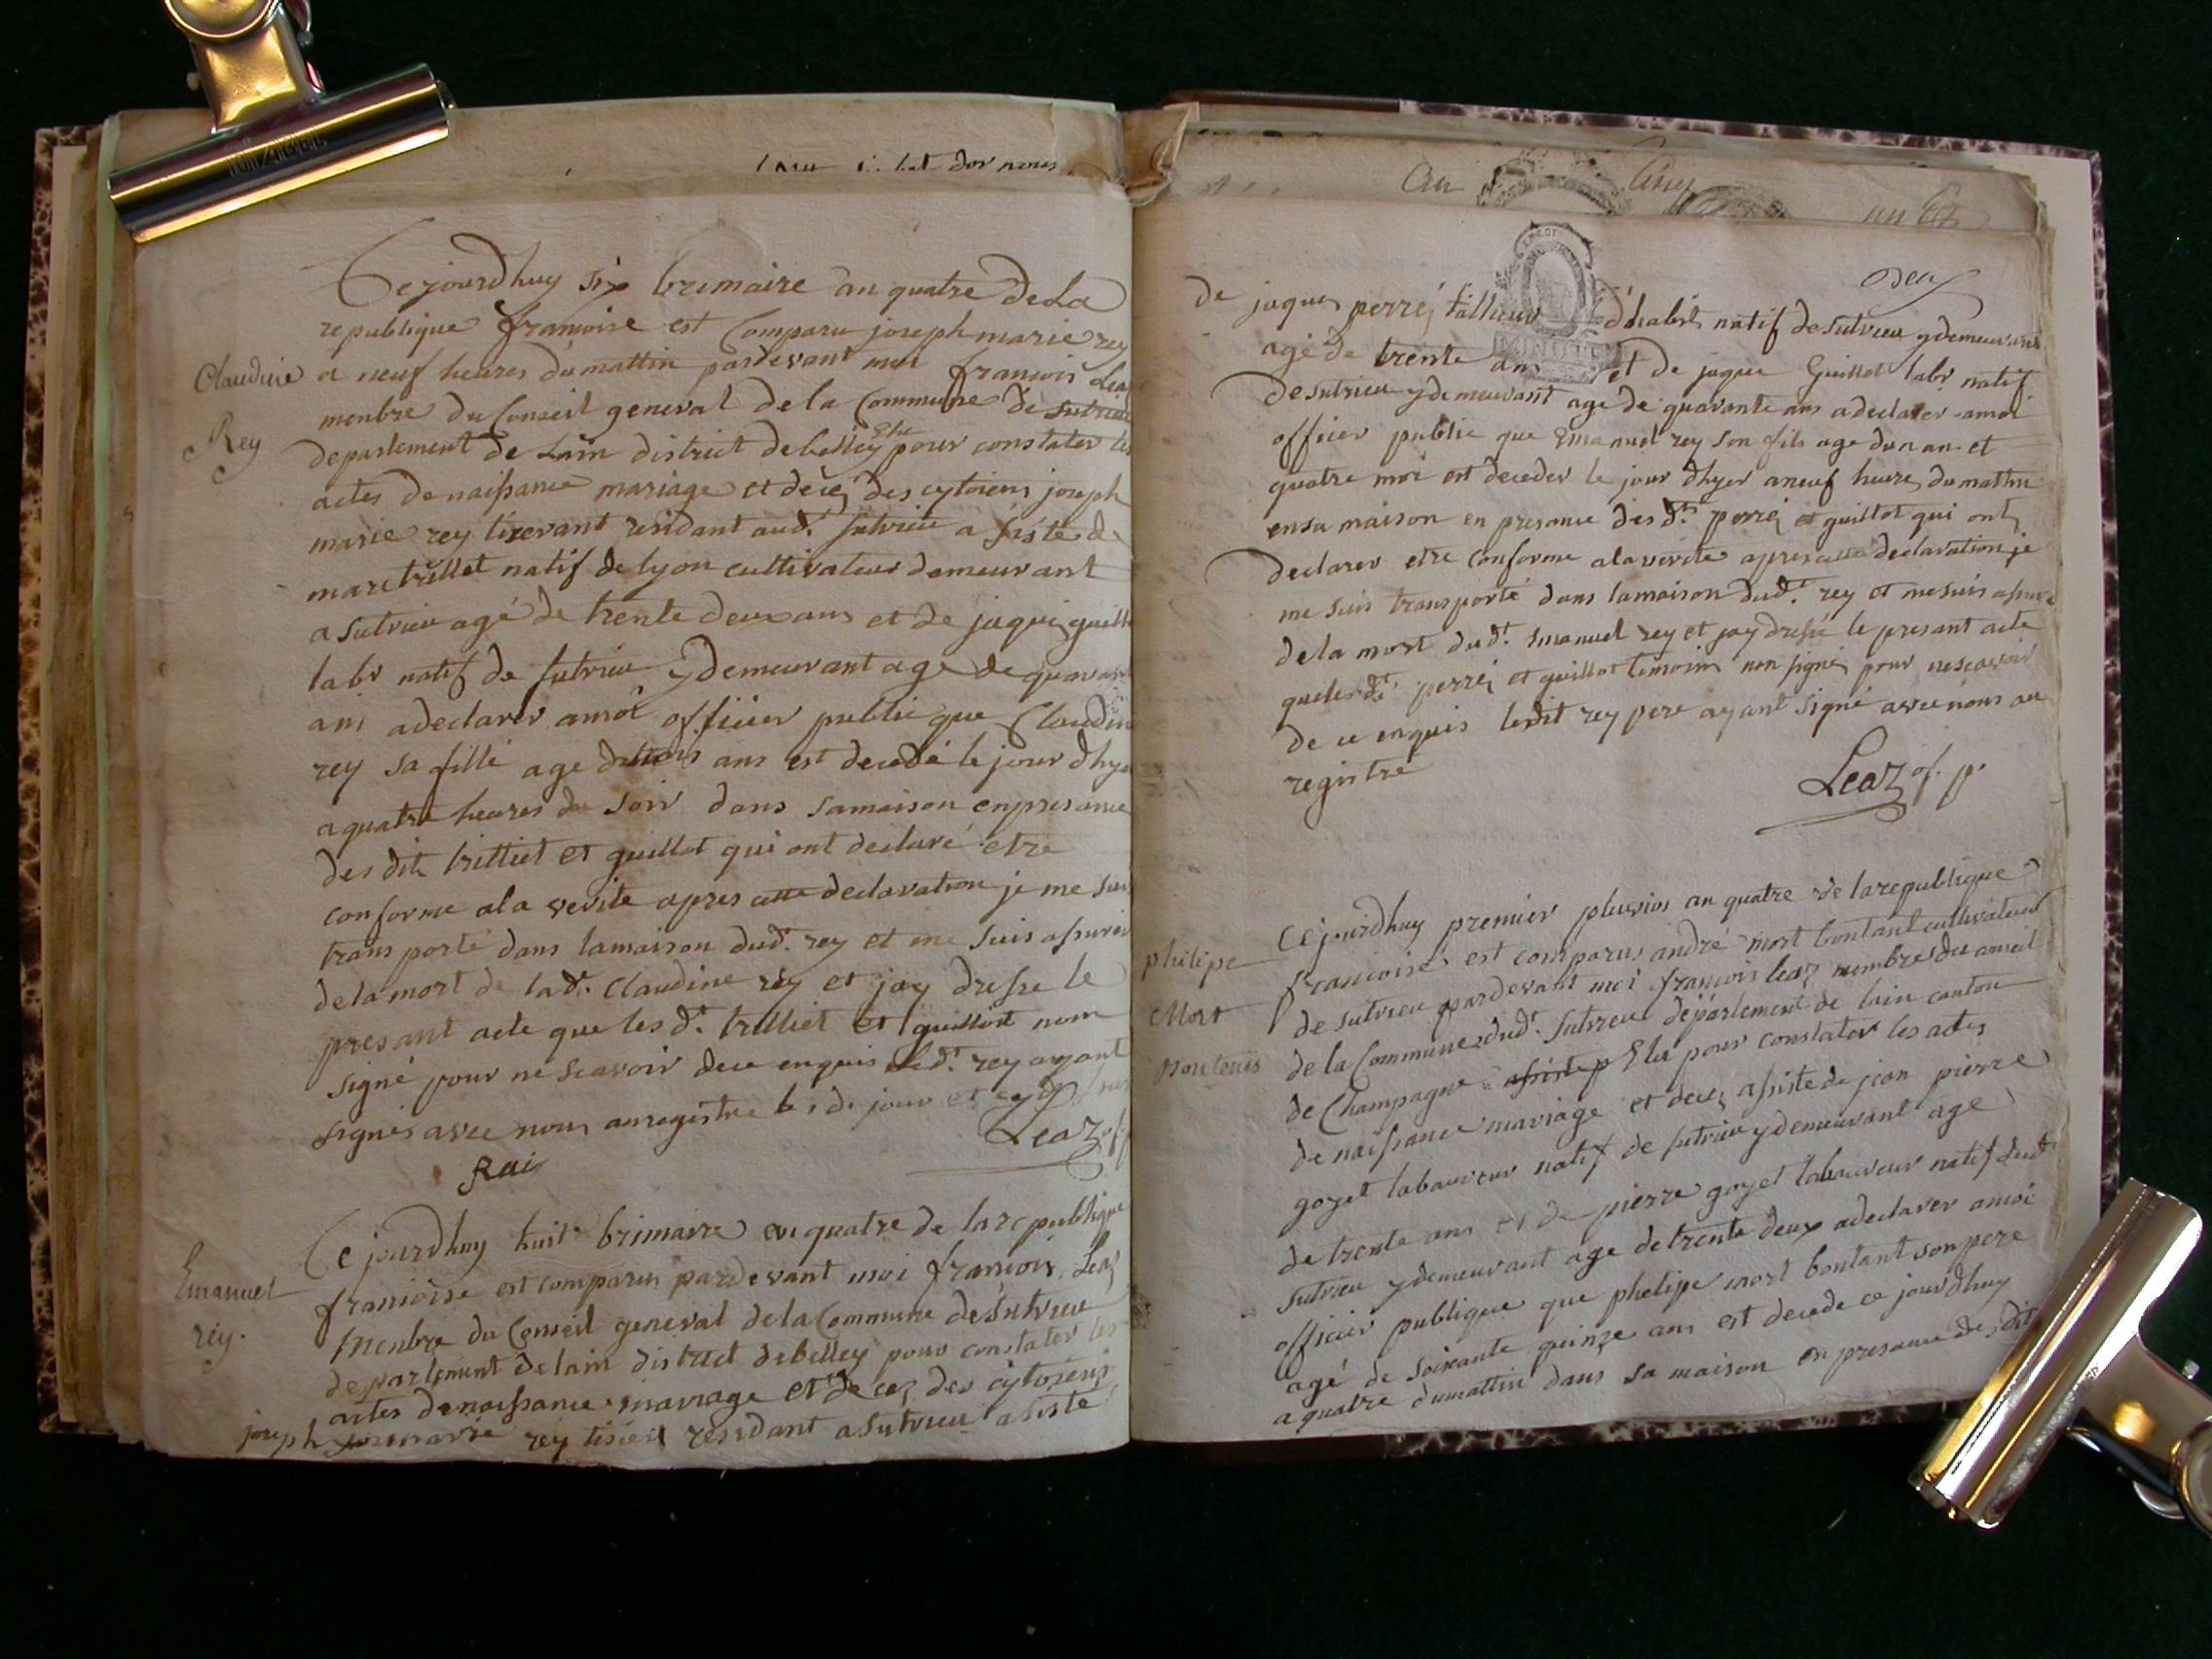 Cejourdhuy six brumaire an quatre de La
republique francoise est Comparu joseph marie rey
Claudine
a neuf heures du mattin pardevant moi francois Leaz
menbre du Conseil general de la Commune de sutrieu
Rey
departement de Lain district de belley Elu pour constater les
actes de naissance mariage et décéz des cytoiens joseph
marie rey tixerant residant aud.t sutrieu asisté de
marc trilliet natif de lyon cultivateur demeurant
a sutrieu agé de trente deux ans et de jaques guillot
labr natif de sutrieu y demeurant age de quarante
ans adeclarer amoi officier public que Claudine
rey sa fille age de trois ans est decedé le jour dhyer
a quatre heures du soir dans samaison enpresance
des dits trilliet et guillot qui ont declaré etre
conforme ala verite apres cette declaration je me suis
trans porté dans lamaison dud.t rey et me suis assuréz
dela mort de lad.t Claudine rey et jay dresse le
presant acte que les d.t trilliet et guillot nom
signé pour ne scavoir dece enquis led.t rey ayant
signés avec nous auregistre les de jour et
Leaz of. p.
Rai
Ce jourdhuy huit brimaire an quatre de larepublique
Emanuel
francoise est comparus pardevant moi francois Leaz
rey.
menbre du Conseil general dela Commune de sutrieu
departement delain district debelley pour constater les
actes denaissance mariage et decez des cytoiens
joseph marie rey tisiers residant a Sutrieu asisté
an Cinq
Deux
de jaques perréz tallieur d'habits natif de sutrieu y demeurant
agé de trente ans et de jaque Guillot labr natif
de sutrieu y demeurant age de quarante ans adeclarer amoi
officier public que Emanuel rey son fils age dun an et
quatre moi est deceder le jour dhyer aneuf heures du mattin
ensa maison en presance des d.ts perréz et guillot qui ont
declarer etre Conforme alaverite apres cette declaration je
me suis transporté dans lamaison dud.t rey et mesuis assure
dela mort dud.t Emanuel rey et jay dressé le presant acte
queles d.t perréz et guillot temoins non signé pour nescavoir
de ce enquis ledit rey pere ayant signé avec nous au
registre
Leaz of. p.
Cejourdhuy premier pluvios an quatre de larepublique
philipe
francoise est comparus andré mort bontant cultivateur
Mort
de sutrieu pardevant moi francois leaz menbre du conseil
Bontems
de la Commune dud.t sutrieu departement de lain canton
de Champagne Elu pour constater les actes
de naissance mariage et decez asiste de jean pierre
goyet laboureur natif de sutrieu y demeurant age
de trente ans et de pierre goyet laboureur natif dud.t
sutrieu y demeurant age de trente deux adeclarer amoi
officier publique que phelipe mort bontant son pere
agé de soixante quinze ans est decede ce jourdhuy
a quatre dumattin dans sa maison en presance des dits